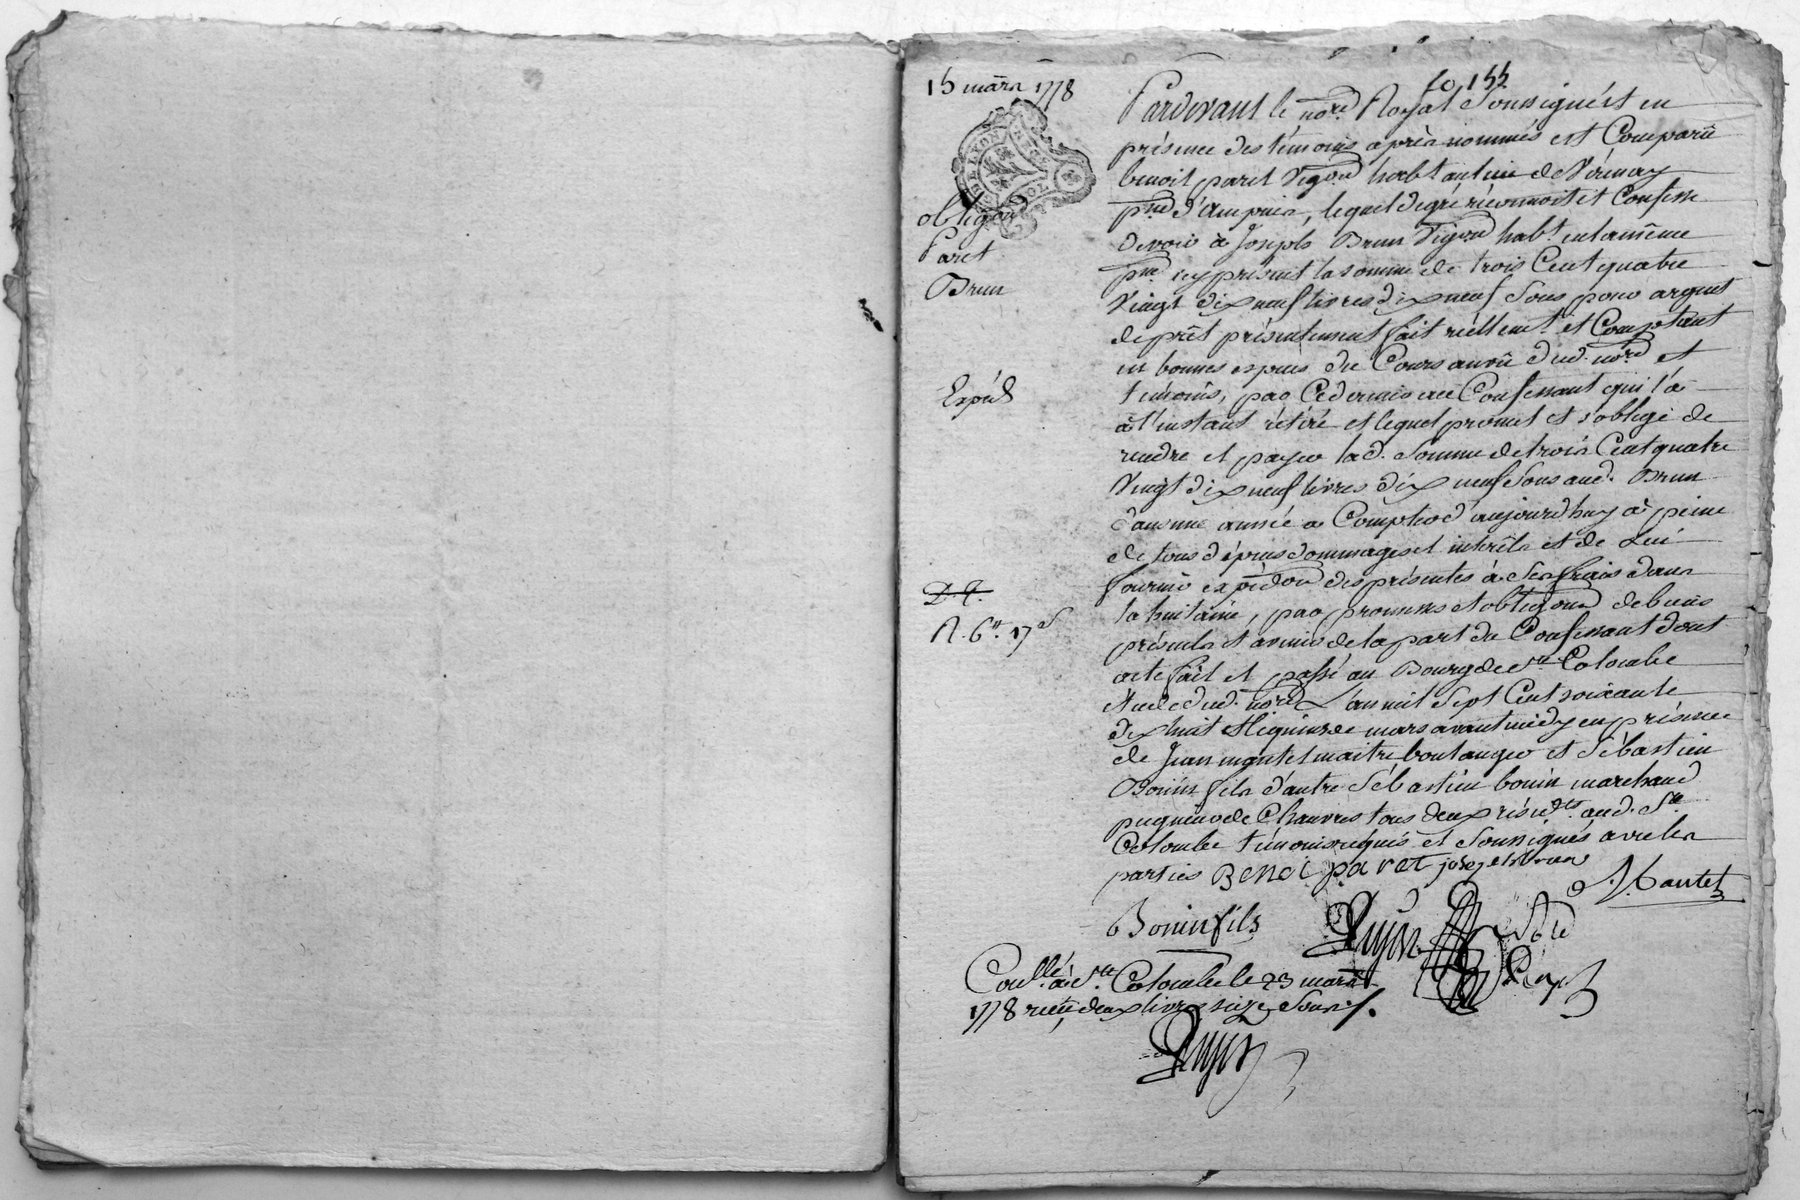 15 mars 1778
fo 155
Pardevant le nore Royal soussigné et en
présence des témoins après nommés est Comparû
benoit paret vigon habtant de Vérenay
psse d'ampuis, lequel de gré réconnoit et Confesse
devoir à Joseph Brun Vigon habt en la même
psse icy présent la somme de trois Cent quatre
Vingt dix neuf livres dix neuf sous pour argent
de prêt présentement fait réellemt et Comptant
en bonnes espèces du Cours au vû dud. nore et
témoins, par Ce dernier au Confessant qui l'a
à l'instant rétiré et lequel promet et s'oblige de
rendre et payer lad. Somme de trois Cent quatre
Vingt dix neuf livres dix neuf Sous aud. Brun
dans une année à Compter d'aujourdhuy à peine
de tous dépens dommages et intérêts et de Lui
fournir expédon des présentes à ses frais dans
la huitaine, par promesses et obligons de biens
présents et avenir de la part du Confessant dont
acte fait et passé au Bourg de Ste Colombe
Etude dud. nore L'an mil Sept Cent soixante
dix huit et le quinze mars avant midy en présence
de Jean mantet maitre boulanger et Sébastien
Bonin fils d'autre Sébastien bonin marchand
peigneur de Chanvres tous deux résidts aud. Ste
Colombe témoins requis et soussignés avec les
parties Benoi paret joseph brun
J Mantet
Bonin fils
obligon
Paret
Brun
Expéd
D. q.
R. 6tt 17s
Conllé à Ste Colombe le 23 mars
1778 reçu deux livres seize Sous